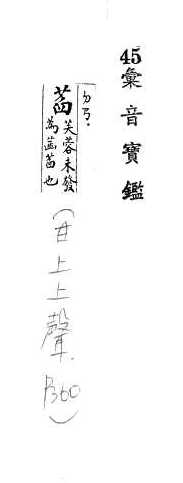 45彙音寶鑑
萏 芙蓉未發
為菡萏也
(甘上上聲. P360)